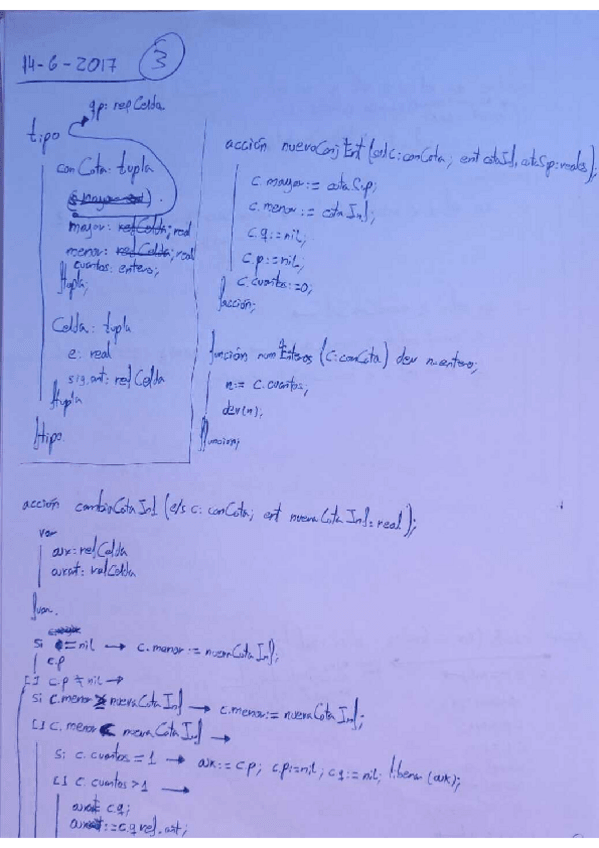 14-6-2017 3
q,p: ref Celda
tipo
conCota: tupla
mayor: real
menor: real
cuantos: entero;
ftupla;
Celda: tupla
e: real
sig,ant: ref Celda
ftupla
ftipo
acción nuevoConjEnt (sal c: conCota; ent cotaInf, cotaSup: reales);
c.mayor := cotaSup;
c.menor := cotaInf;
c.q := nil;
c.p := nil;
c.cuantos := 0;
facción;
función numEnteros (c: conCota) dev n: entero;
n := c.cuantos;
dev(n);
función;
acción cambiaCotaInf (e/s c: conCota; ent nuevaCotaInf: real);
var
aux: ref Celda
auxant: ref Celda
fvar.
si c.p = nil → c.menor := nuevaCotaInf;
[] c.p ≠ nil →
si c.menor nuevaCotaInf → c.menor := nuevaCotaInf;
[] c.menor < nuevaCotaInf →
si c.cuantos = 1 → aux := c.p; c.p := nil; c.q := nil; liberar (aux);
[] c.cuantos > 1 →
c.q;
:= c.q ref.ant;